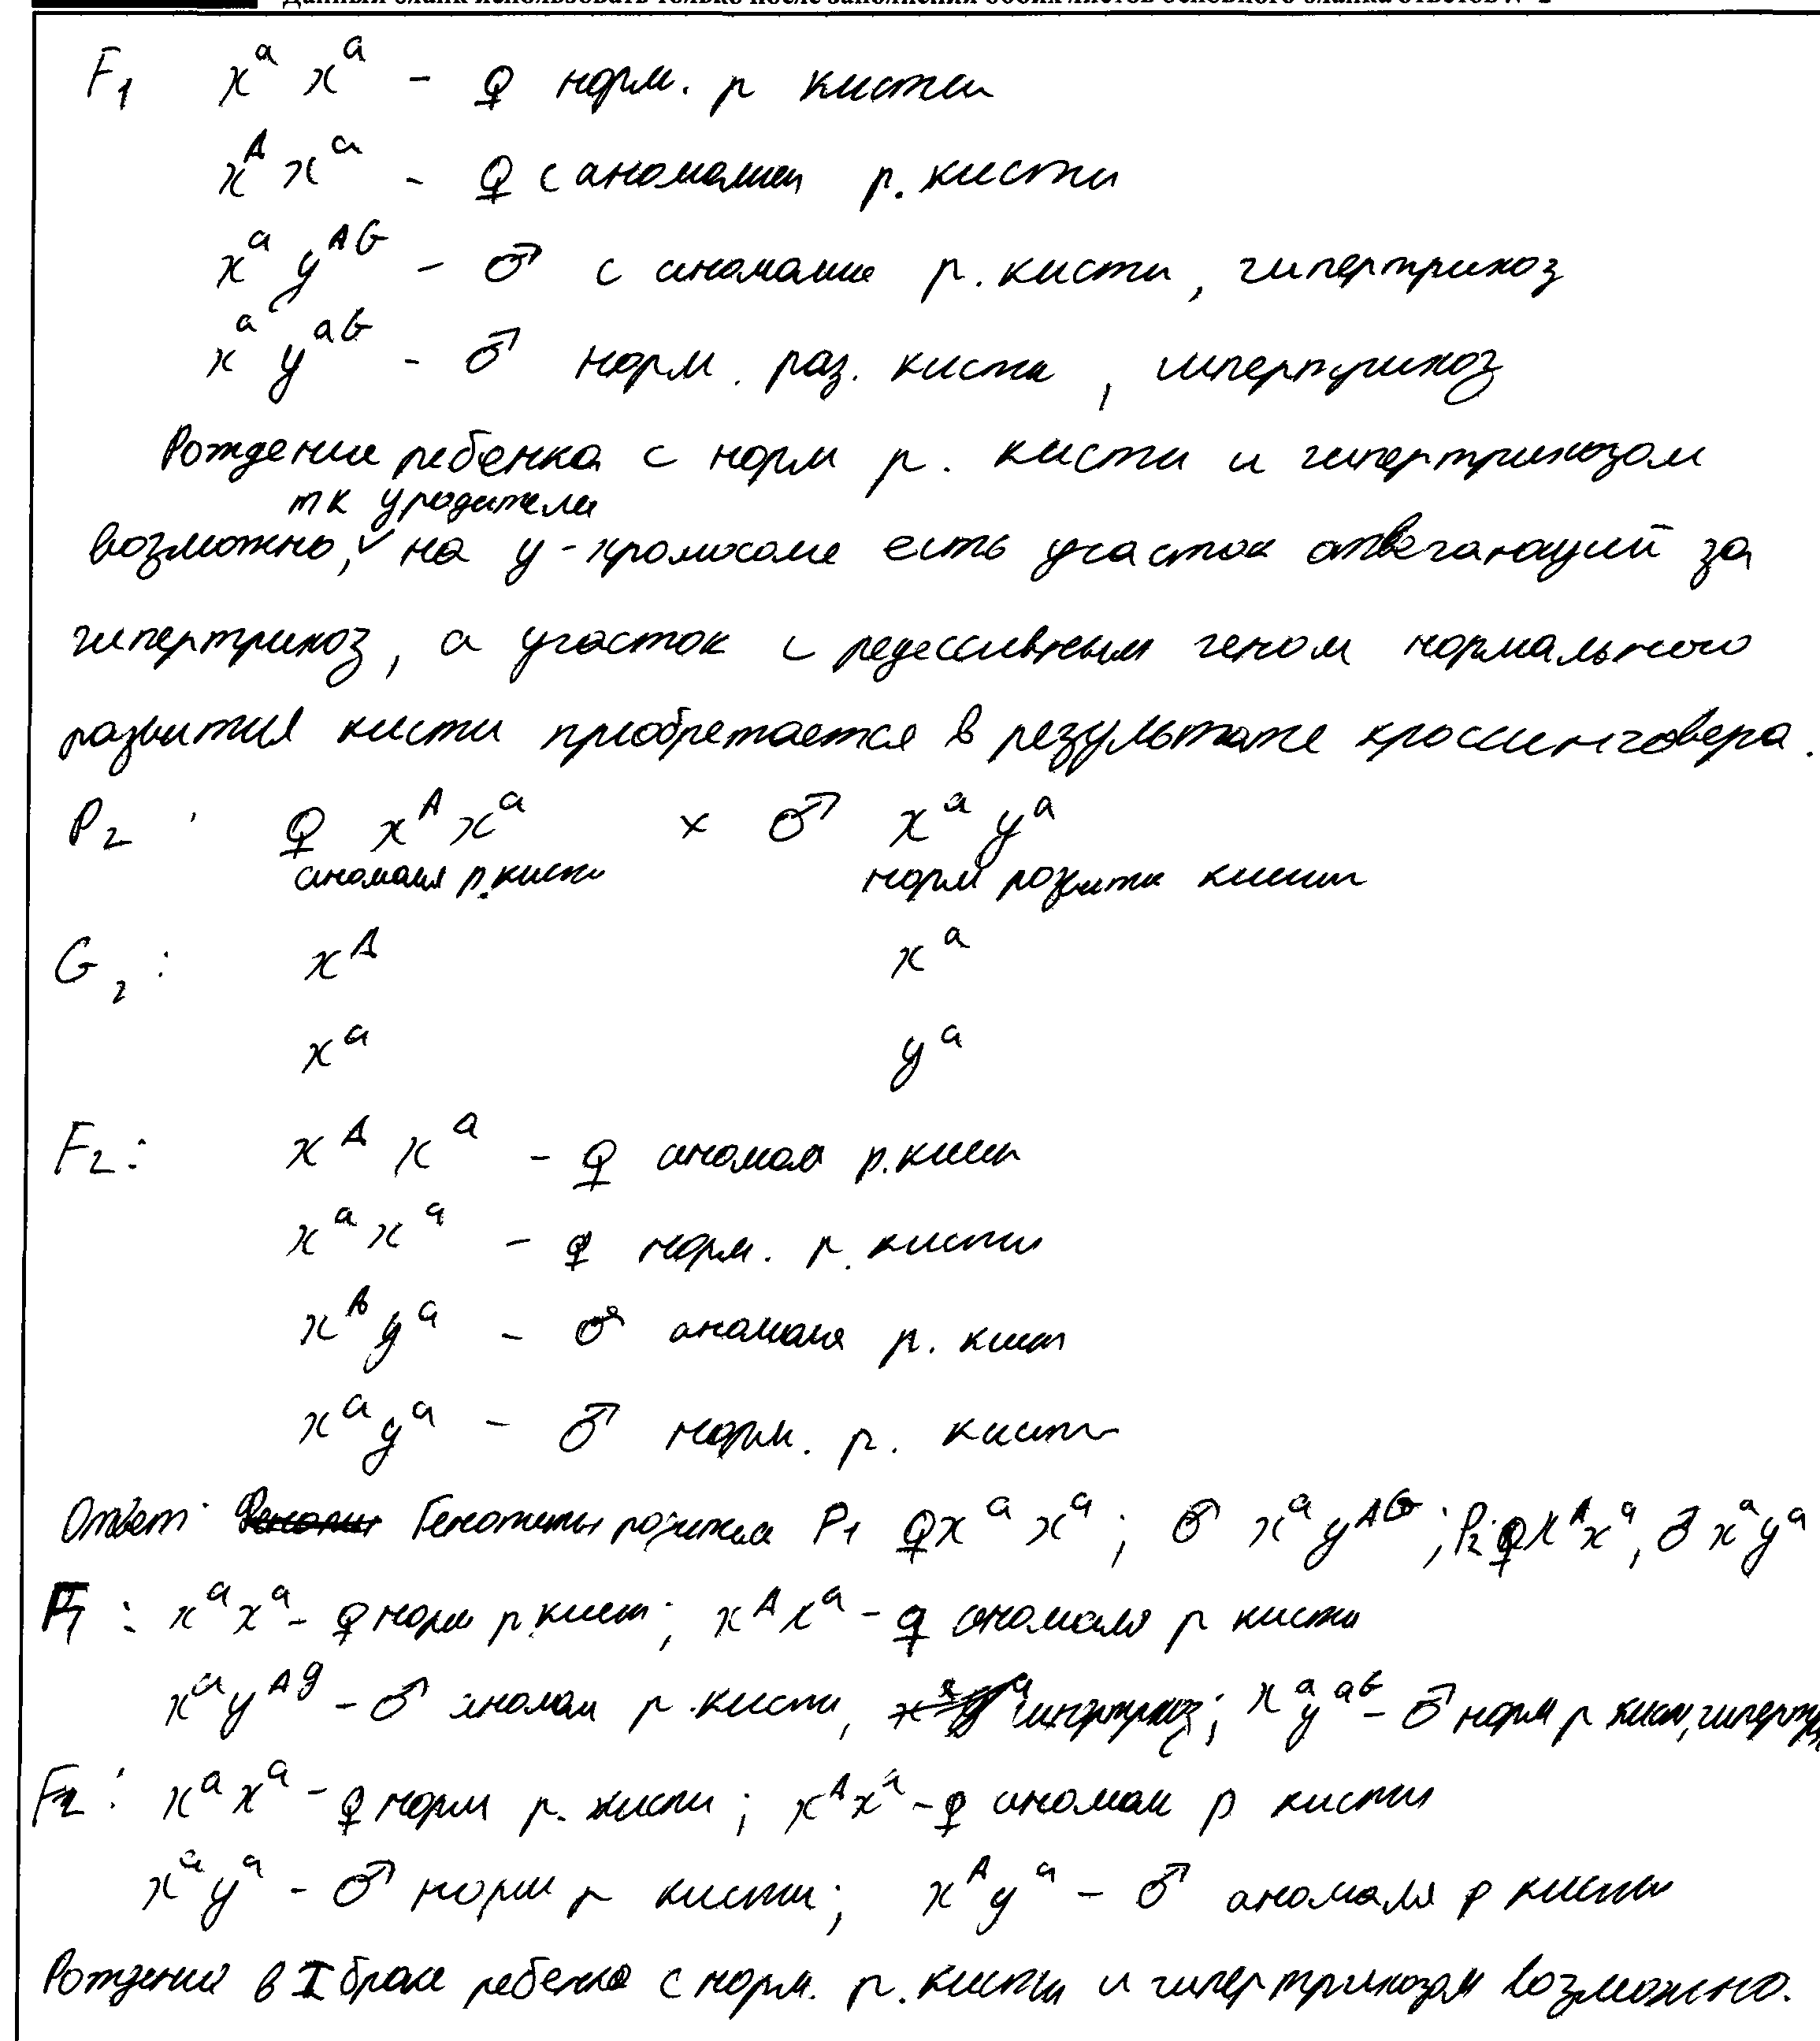 Данный бланк использовать только после заполнения обоих листов основного бланка ответов № 2
F₁ xᵃ xᵃ - ♀ норм. р кисти
xᴬ xᵃ - ♀ с аномалией р. кисти
xᵃ yᴬᴳ - ♂ с аномалие р. кисти, гипертрихоз
xᵃ yᵃᴳ - ♂ норм. раз. кисти, гипертрихоз
Рождение ребенка с норм р. кисти и гипертрихозом
тк у родителя
возможно, ✓ на y-хромосоме есть участок отвечающий за
гипертрихоз, а участок с рецессивным геном нормального
развития кисти приобретается в результате кроссинговера.
P₂ : ♀ xᴬ xᵃ × ♂ xᵃ yᵃ
аномалия р. кисти норм развития кисти
G₂ : xᴬ xᵃ
xᵃ yᵃ
F₂ : xᴬ xᵃ - ♀ аномал р. кисти
xᵃ xᵃ - ♀ норм. р. кисти
xᴬ yᵃ - ♂ аномалия р. кист
xᵃ yᵃ - ♂ норм. р. кисти
Ответ: Генотипы родителей P₁ ♀ xᵃ xᵃ ; ♂ xᵃ yᴬᴳ ; P₂ ♀ xᴬ xᵃ, ♂ xᵃ yᵃ
F₁ : xᵃ xᵃ - ♀ норм р. кист ; xᴬ xᵃ - ♀ аномалия р кисти
xᵃ yᴬᵍ - ♂ аномал р. кисти, гипертрихоз ; xᵃ yᵃᴳ - ♂ норм р кисти, гипертри
F₂ : xᵃ xᵃ - ♀ норм р. кисти ; xᴬ xᵃ - ♀ аномал р кисти
xᵃ yᵃ - ♂ норм р кисти ; xᴬ yᵃ - ♂ аномалия р кисти
Рождение в I браке ребенка с норм. р. кисти и гипертрихозом возможно.